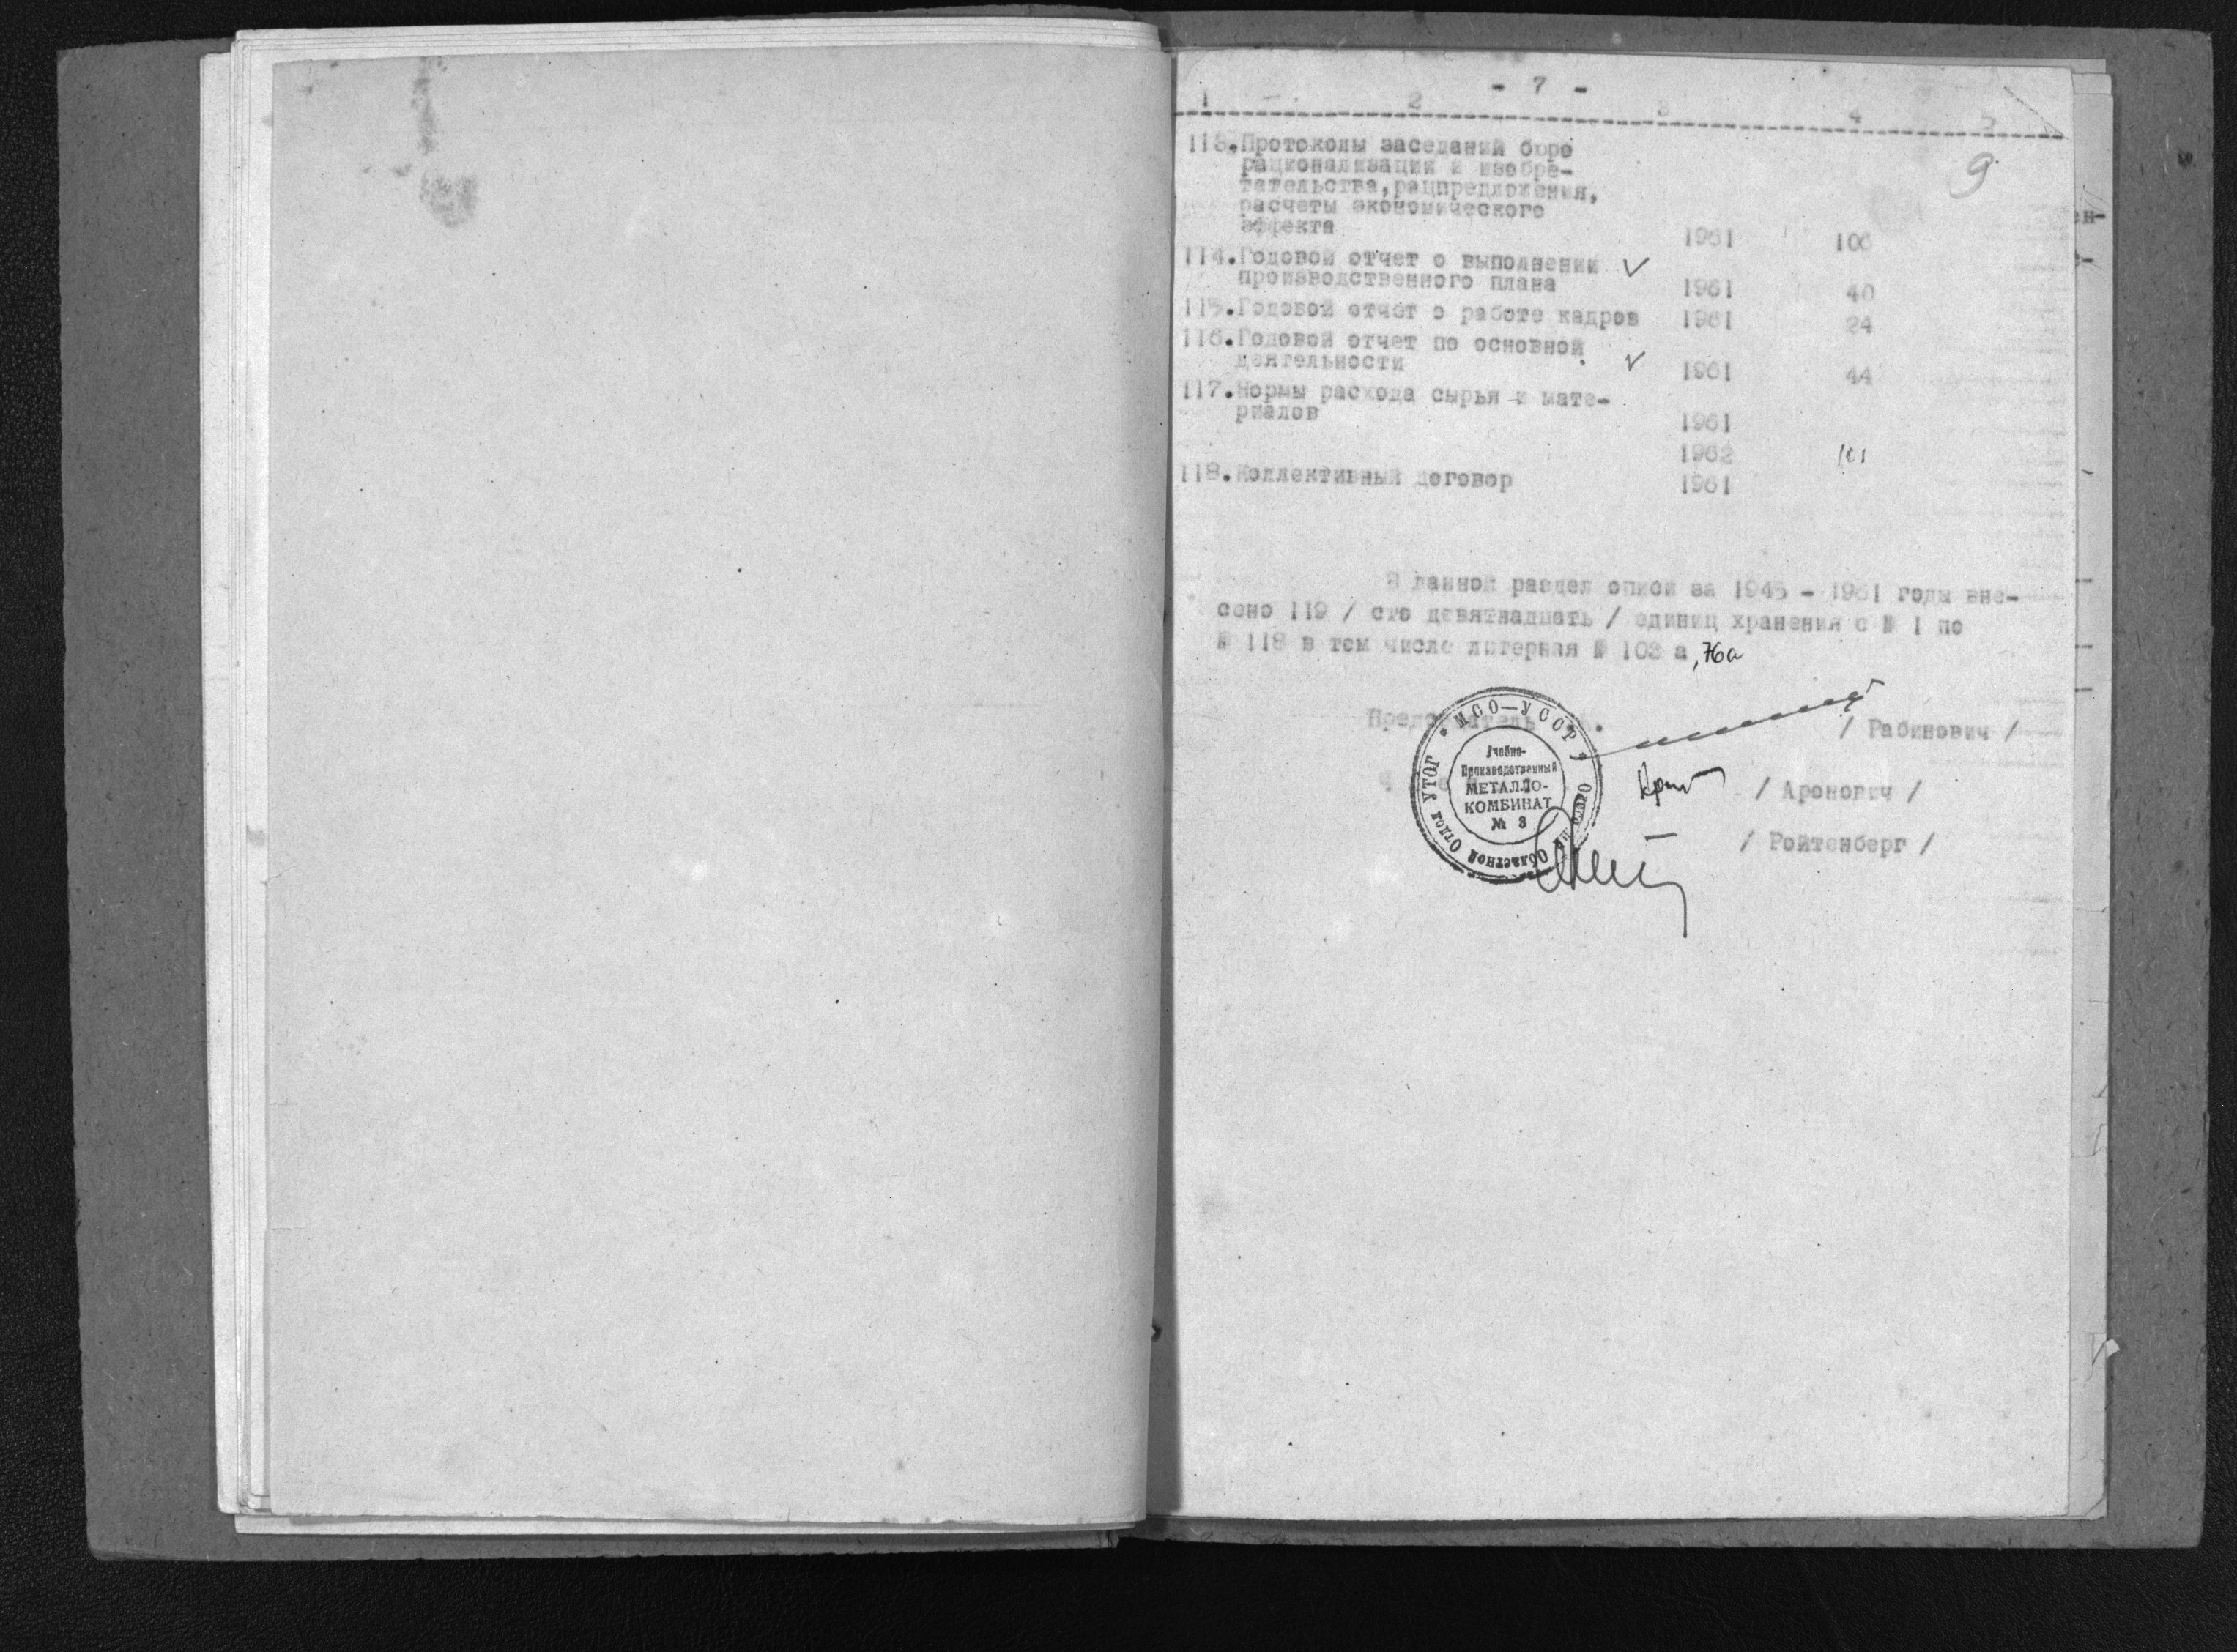 - 7 -
1 2 3 4 5
9
113. Протоколы заседаний бюро
рационализации и изобре-
тательства, рацпредложения,
расчеты экономического
эффекта 1961 106
114. Годовой отчет о выполнении
производственного плана 1961 40
115. Годовой отчет о работе кадров 1961 24
116. Годовой отчет по основной
деятельности 1961 44
117. Нормы расхода сырья и мате-
риалов 1961
1962 101
118. Коллективный договор 1961
В данной раздел описи за 1945 - 1961 годы вне-
сено 119 / сто девятнадцать / единиц хранения с № 1 по
№ 118 в том числе литерная № 103 а, 76а
Председатель
/ Рабинович /
/ Аронович /
/ Ройтенберг /
* МСО—УССР
Областной Отдел УТОГ
Учебно-
Производственный
МЕТАЛЛО-
КОМБИНАТ
№ 3
ен-